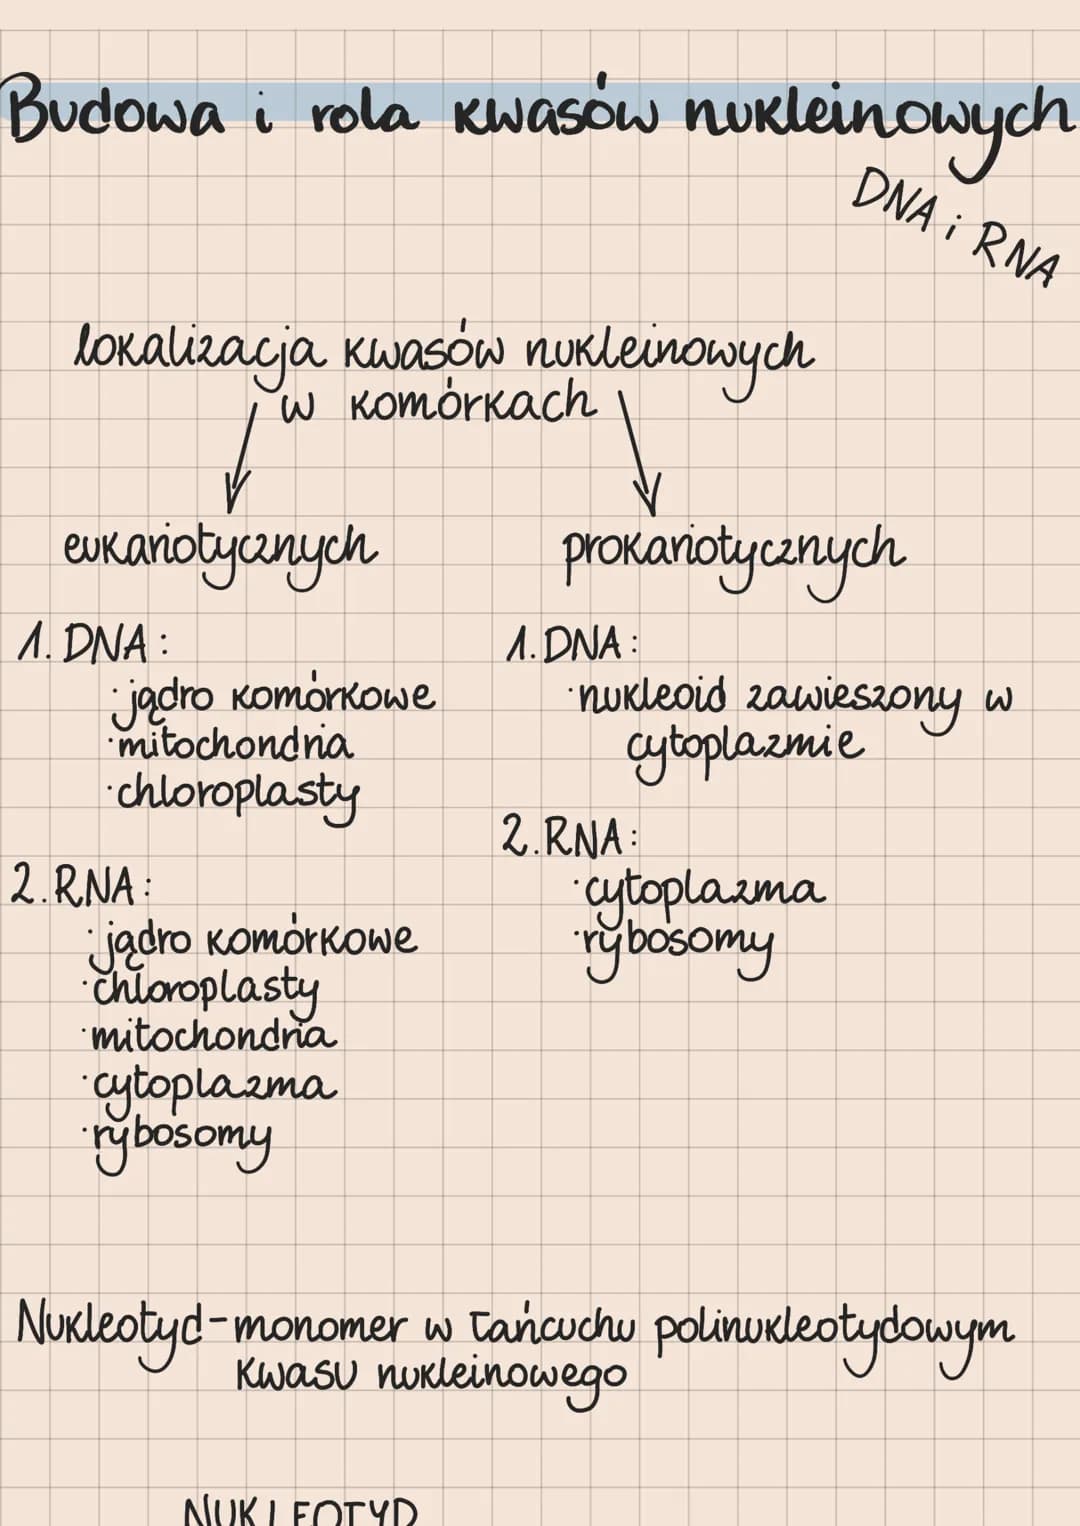 Budowa i rola kwasów nukleinowych
DNA i RNA
lokalizacja kwasów nukleinowych
w komórkach
eukariotycznych
1. DNA:
·jądro komórkowe
·mitochondria
·chloroplasty
2. RNA:
·jądro komórkowe
·chloroplasty
·mitochondria
·cytoplazma
·rybosomy
prokariotycznych
1. DNA:
·nukleoid zawieszony w
cytoplazmie
2. RNA:
·cytoplazma
·rybosomy
Nukleotyd - monomer w łańcuchu polinukleotydowym
kwasu nukleinowego
NUKLEOTYD